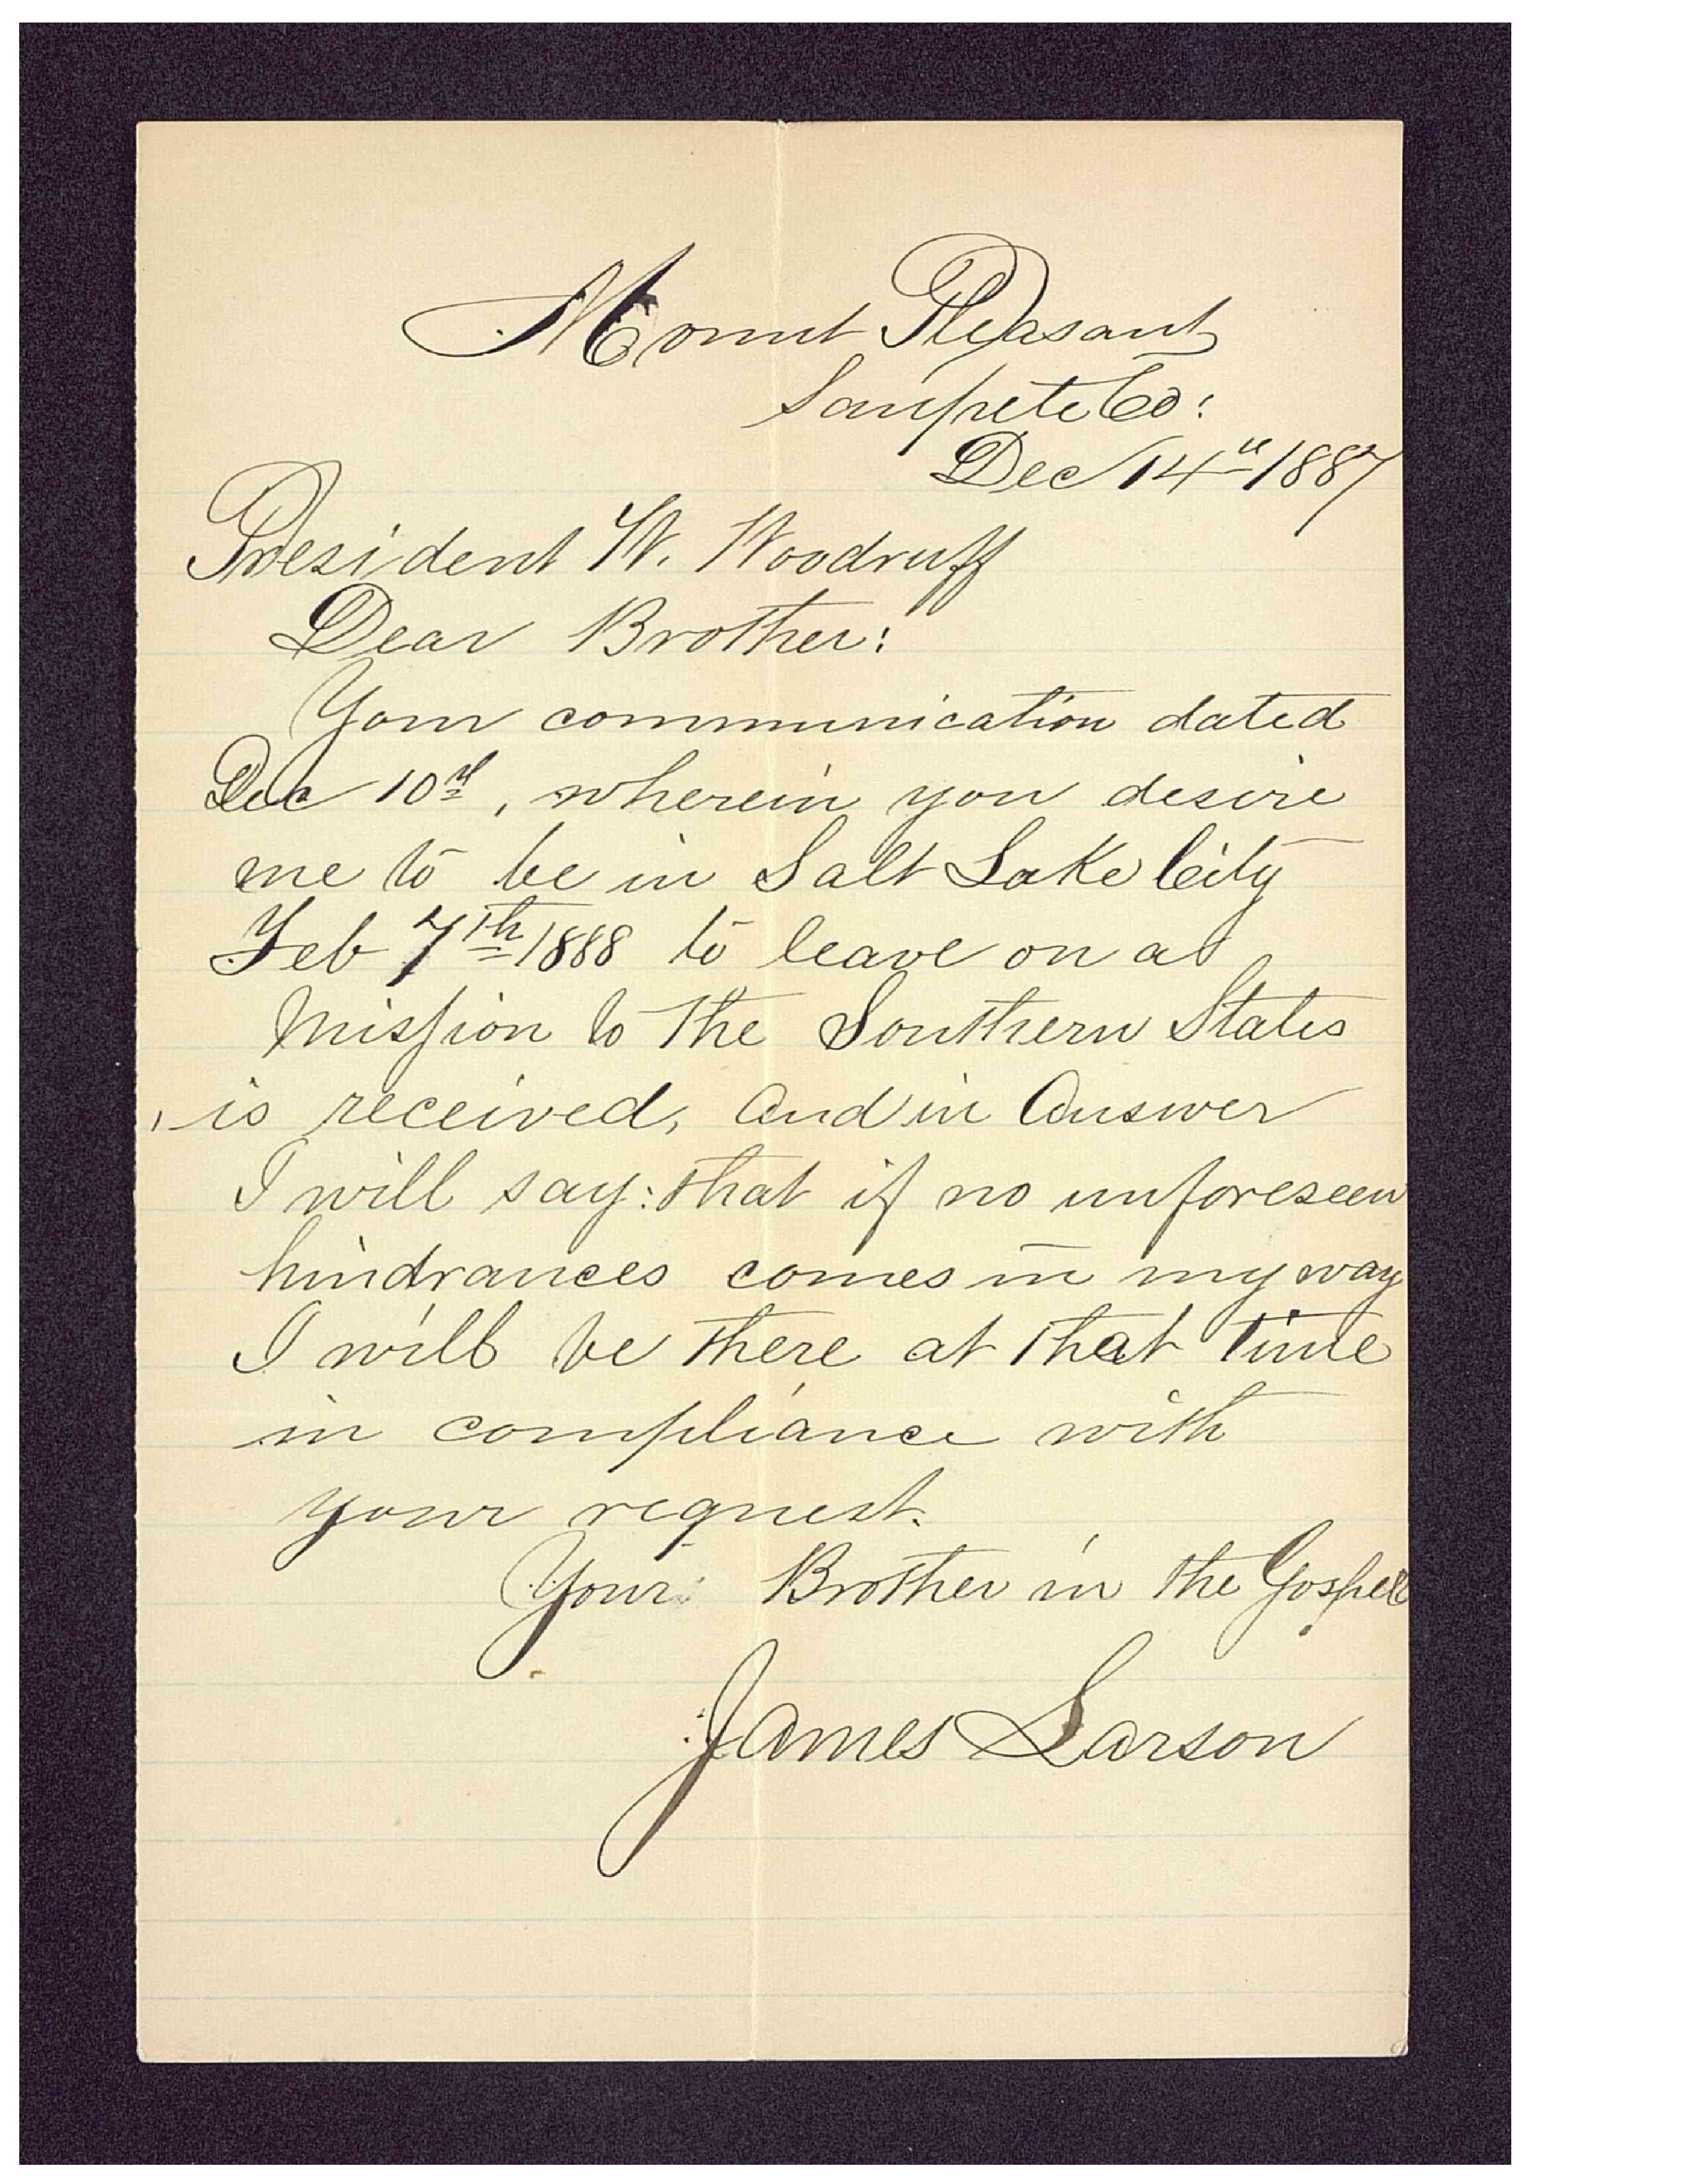 Mount Pleasant
Sanpete Co:
Dec 14th 1887
President W. Woodruff
Dear Brother:
Your communication dated
Dec 10th, wherein you desire
me to be in Salt Lake City
Feb 7th 1888 to leave on a
mission to the Southern States
is received, and in answer
I will say: that if no unforeseen
hindrances comes in my way
I will be there at that time
in compliance with
your request.
Your Brother in the Gospel
James Larson